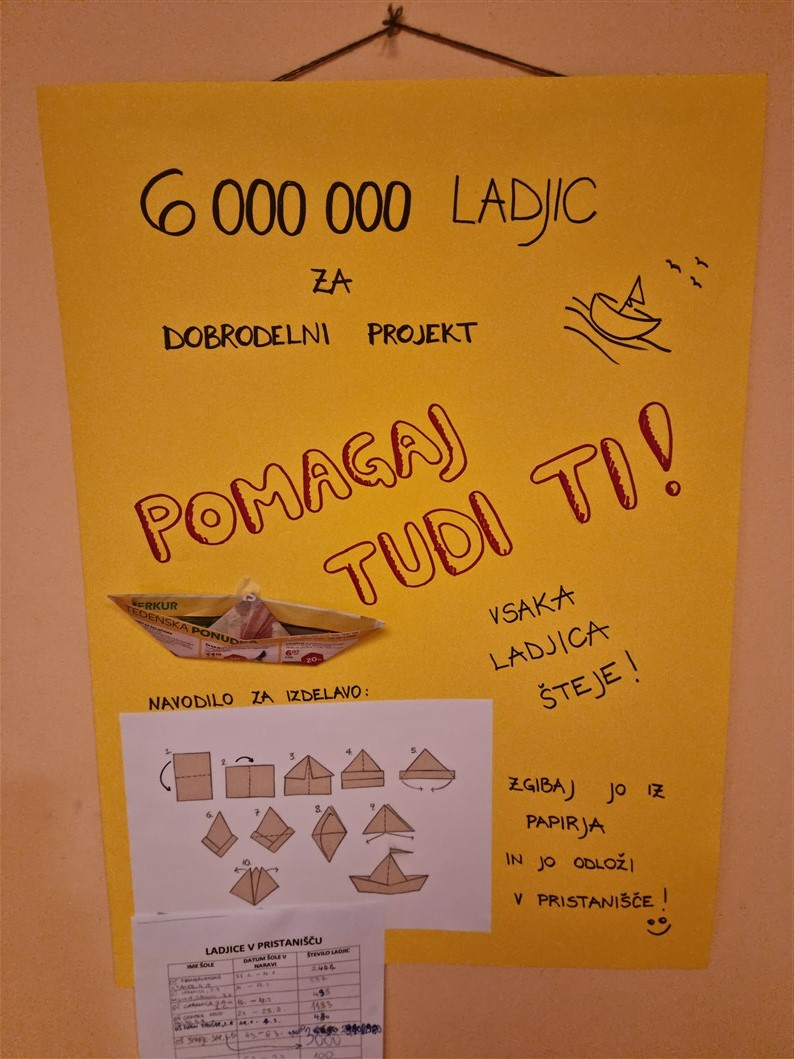 6 000 000 LADJIC
ZA
DOBRODELNI PROJEKT
POMAGAJ
TUDI TI!
ERKUR
TEDENSKA PONUDBA
VSAKA
LADJICA
ŠTEJE!
NAVODILO ZA IZDELAVO:
1.
2.
3.
4.
5.
6.
7.
8.
9.
10.
ZGIBAJ JO IZ
PAPIRJA
IN JO ODLOŽI
V PRISTANIŠČE!
LADJICE V PRISTANIŠČU
IME ŠOLE
DATUM ŠOLE V NARAVI
ŠTEVILO LADJIC
3000
100